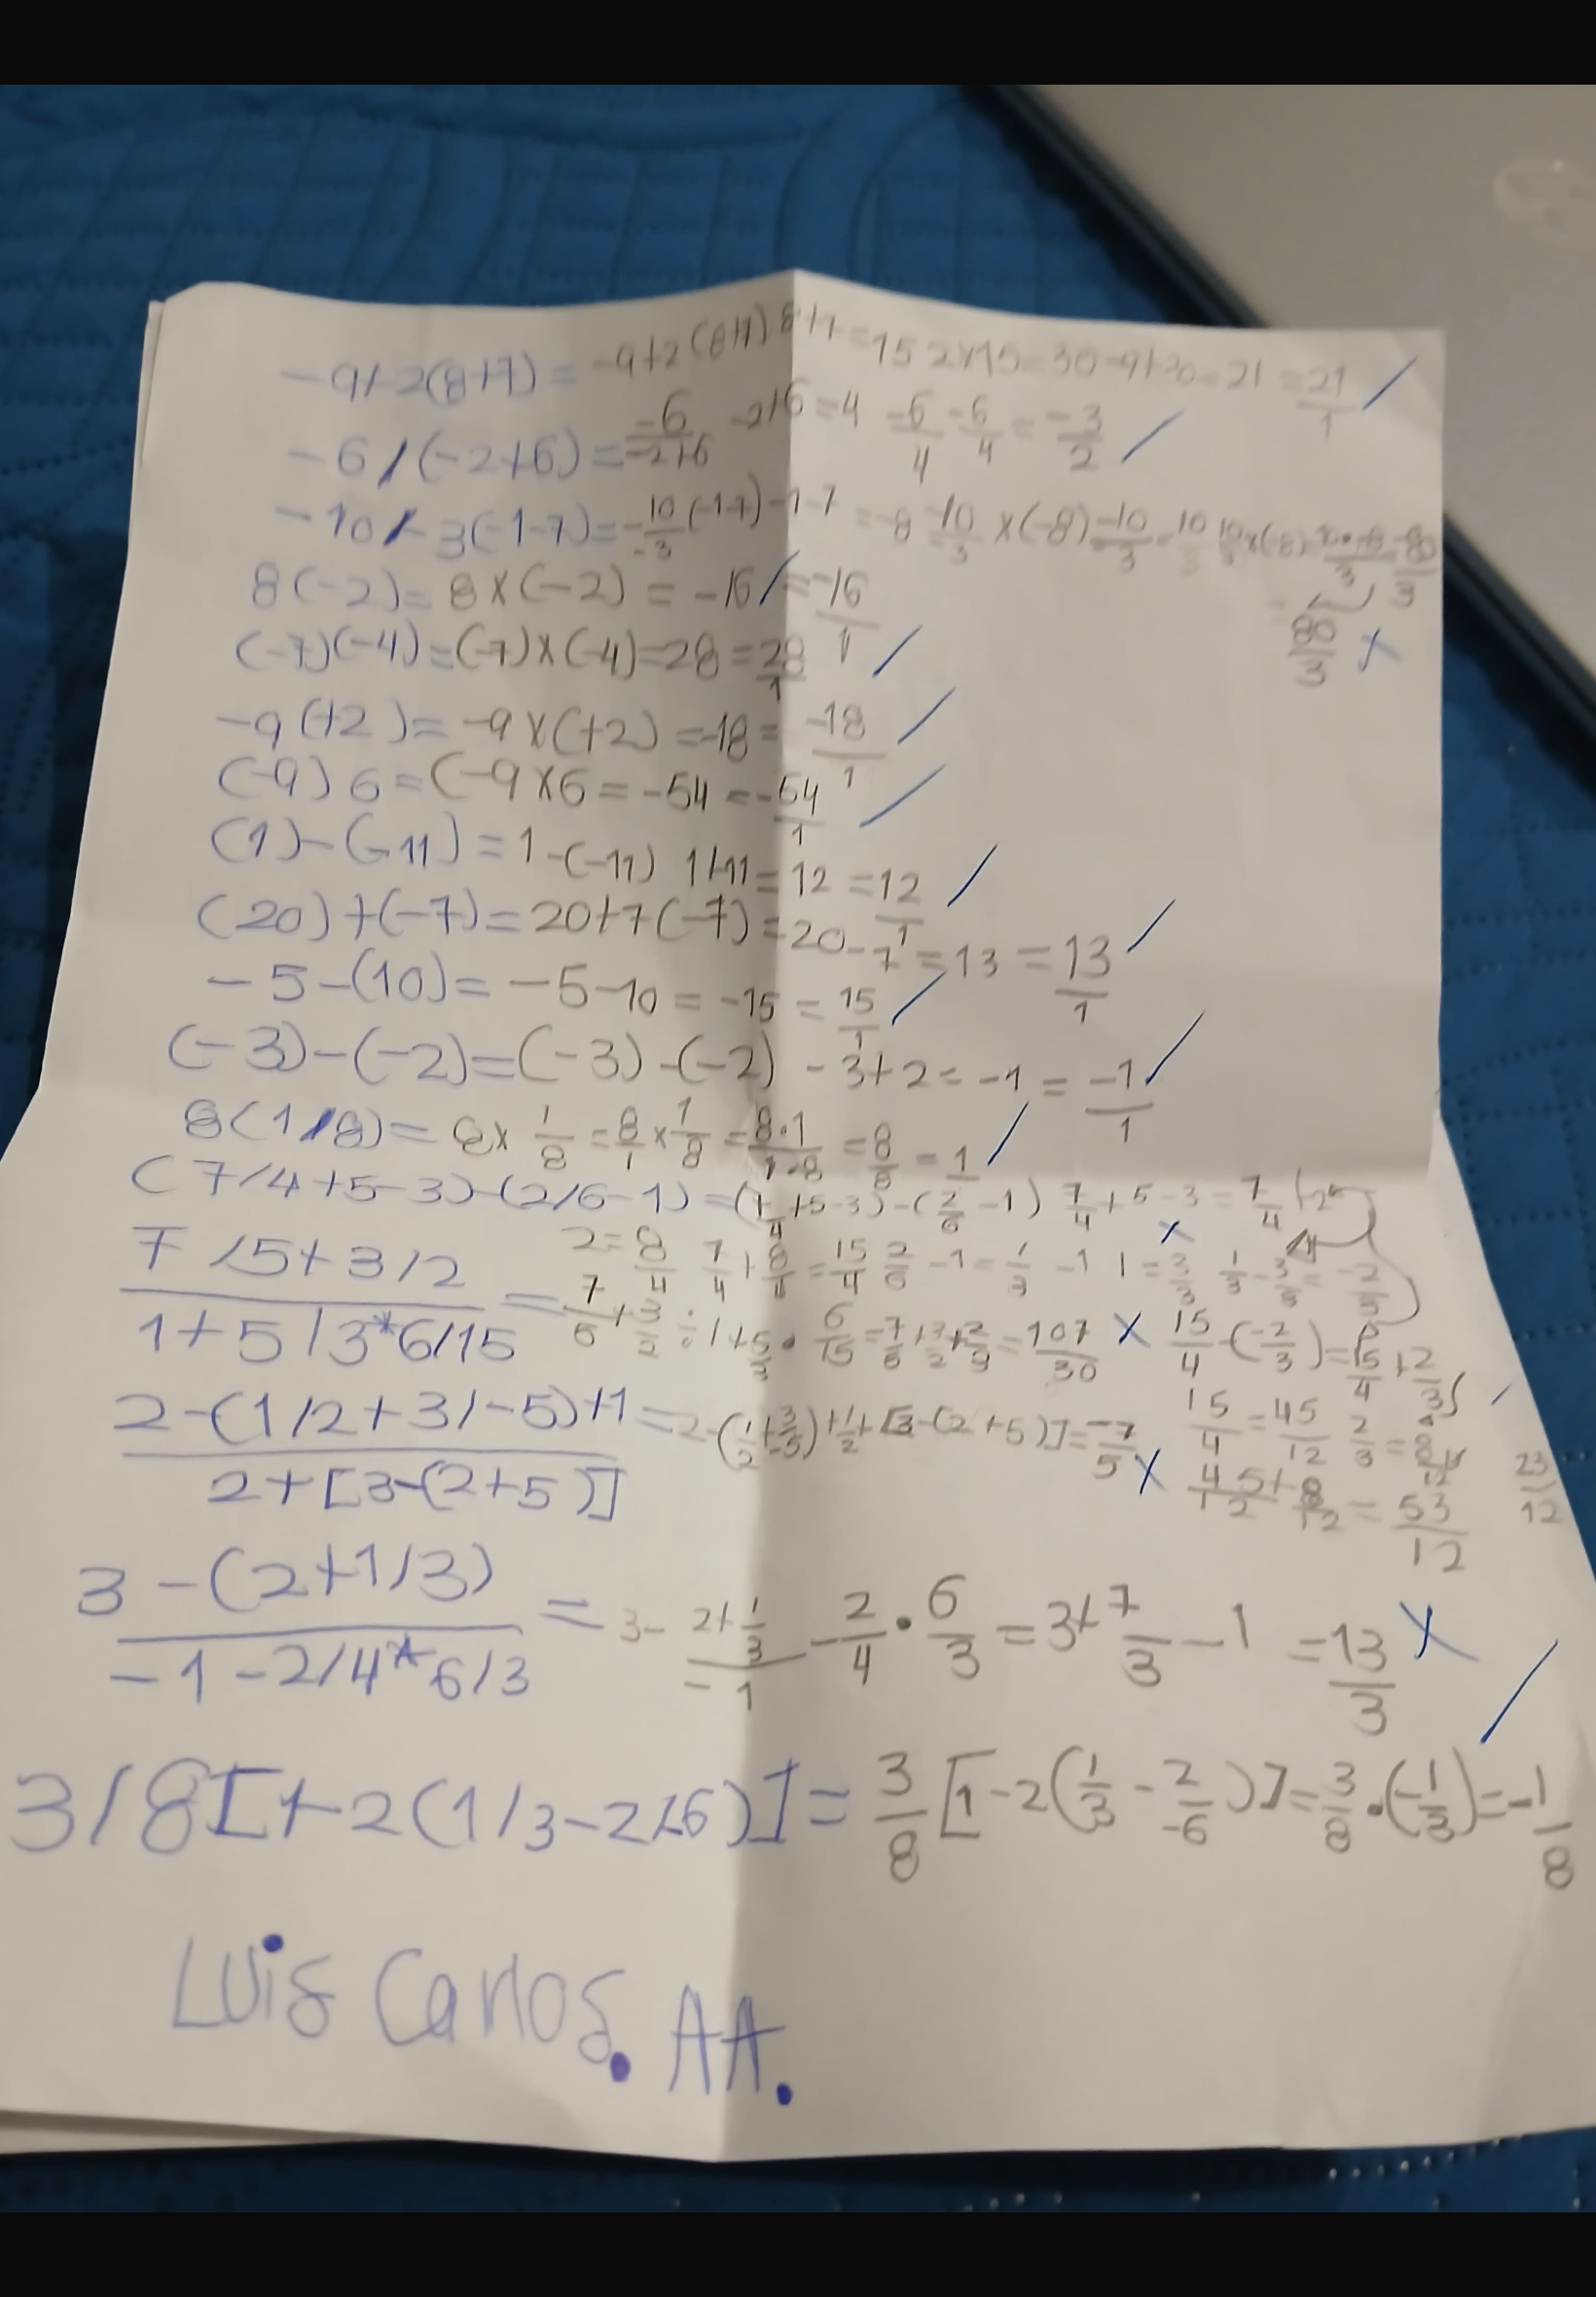 -9+2(8+7) = -9+2(8+7) 8+7 = 15 2x15=30-9+30=21 = 21/1
-6/(-2+6) = -6/-2+6 -2+6=4 -6/4 -6/4 = -3/2
-10/-3(-1-7) = -10/-3 (-1-7) -1-7 = -8 -10/-3 x(-8)
8(-2) = 8x(-2) = -16 = -16/1
(-7)(-4) = (-7)x(-4)=28=28/1
-9(+2) = -9x(+2) = -18 = -18/1
(-9)6 = (-9x6 = -54 = -54/1
(1)-(-11) = 1-(-11) 1+11=12=12/1
(20)+(-7) = 20+7(-7) = 20-7 = 13 = 13/1
-5-(10) = -5-10 = -15 = 15/1
(-3)-(-2) = (-3)-(-2) -3+2 = -1 = -1/1
8(1/8) = 8x 1/8 = 8/1 x 1/8 = 8·1/1·8 = 8/8 = 1
(7/4+5-3)-(2/6-1) = (7/4+5-3)-(2/6-1) 7/4+5-3 = 7/4+2
2=8/4 7/4+8/4=15/4 2/6-1=1/3-1 1=3/3 1/3-3/3=-2/3
7/5+3/2
1+5/3*6/15
= 7/5+3/2÷1+5/3· 6/15=7/5+3/2+2/3=107/30
15/4-(-2/3)=15/4+2/3
15/4=45/12 2/3=8/12
45/12+8/12=53/12
23/12
2-(1/2+3/-5)+1
2+[3-(2+5)]
= 2-(1/2+3/-5)+1/2+[3-(2+5)]=-7/5
3-(2+1/3)
-1-2/4*6/3
= 3- 2+1/3/-1 -2/4·6/3=3+7/3-1 =13/3
3/8[1-2(1/3-2/-6)] = 3/8[1-2(1/3-2/-6)]=3/8·(-1/3)=-1/8
Luis Carlos. AA.